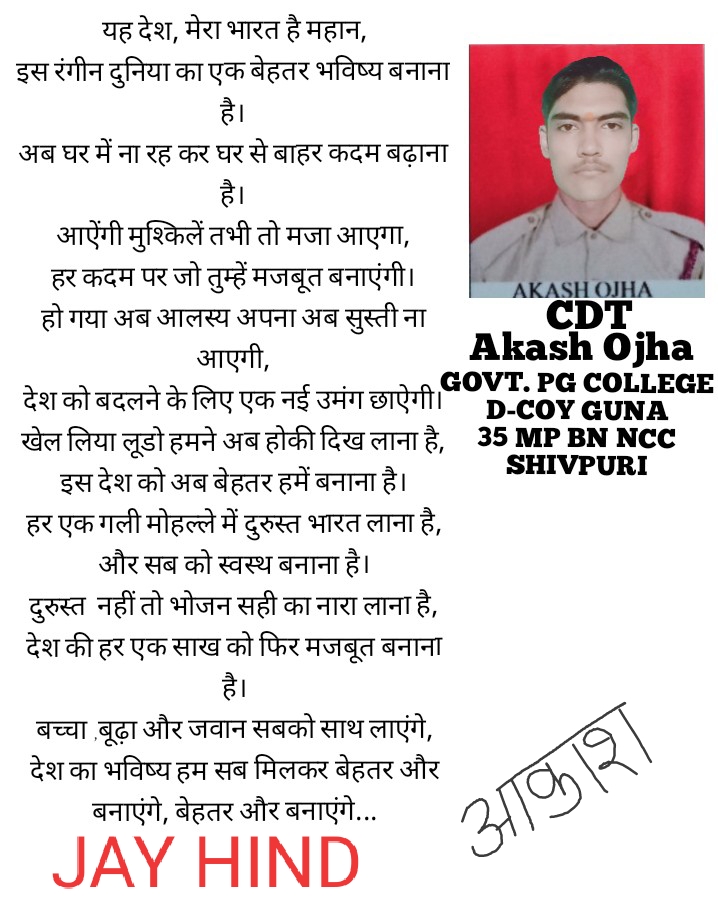 यह देश, मेरा भारत है महान,
इस रंगीन दुनिया का एक बेहतर भविष्य बनाना
है।
अब घर में ना रह कर घर से बाहर कदम बढ़ाना
है।
आऐंगी मुश्किलें तभी तो मजा आएगा,
हर कदम पर जो तुम्हें मजबूत बनाएंगी।
हो गया अब आलस्य अपना अब सुस्ती ना
आएगी,
देश को बदलने के लिए एक नई उमंग छाऐगी।
खेल लिया लूडो हमने अब होकी दिख लाना है,
इस देश को अब बेहतर हमें बनाना है।
हर एक गली मोहल्ले में दुरुस्त भारत लाना है,
और सब को स्वस्थ बनाना है।
दुरुस्त  नहीं तो भोजन सही का नारा लाना है,
देश की हर एक साख को फिर मजबूत बनाना
है।
बच्चा ,बूढ़ा और जवान सबको साथ लाएंगे,
देश का भविष्य हम सब मिलकर बेहतर और
बनाएंगे, बेहतर और बनाएंगे...
JAY HIND
AKASH OJHA
CDT
Akash Ojha
GOVT. PG COLLEGE
D-COY GUNA
35 MP BN NCC
SHIVPURI
आकाश